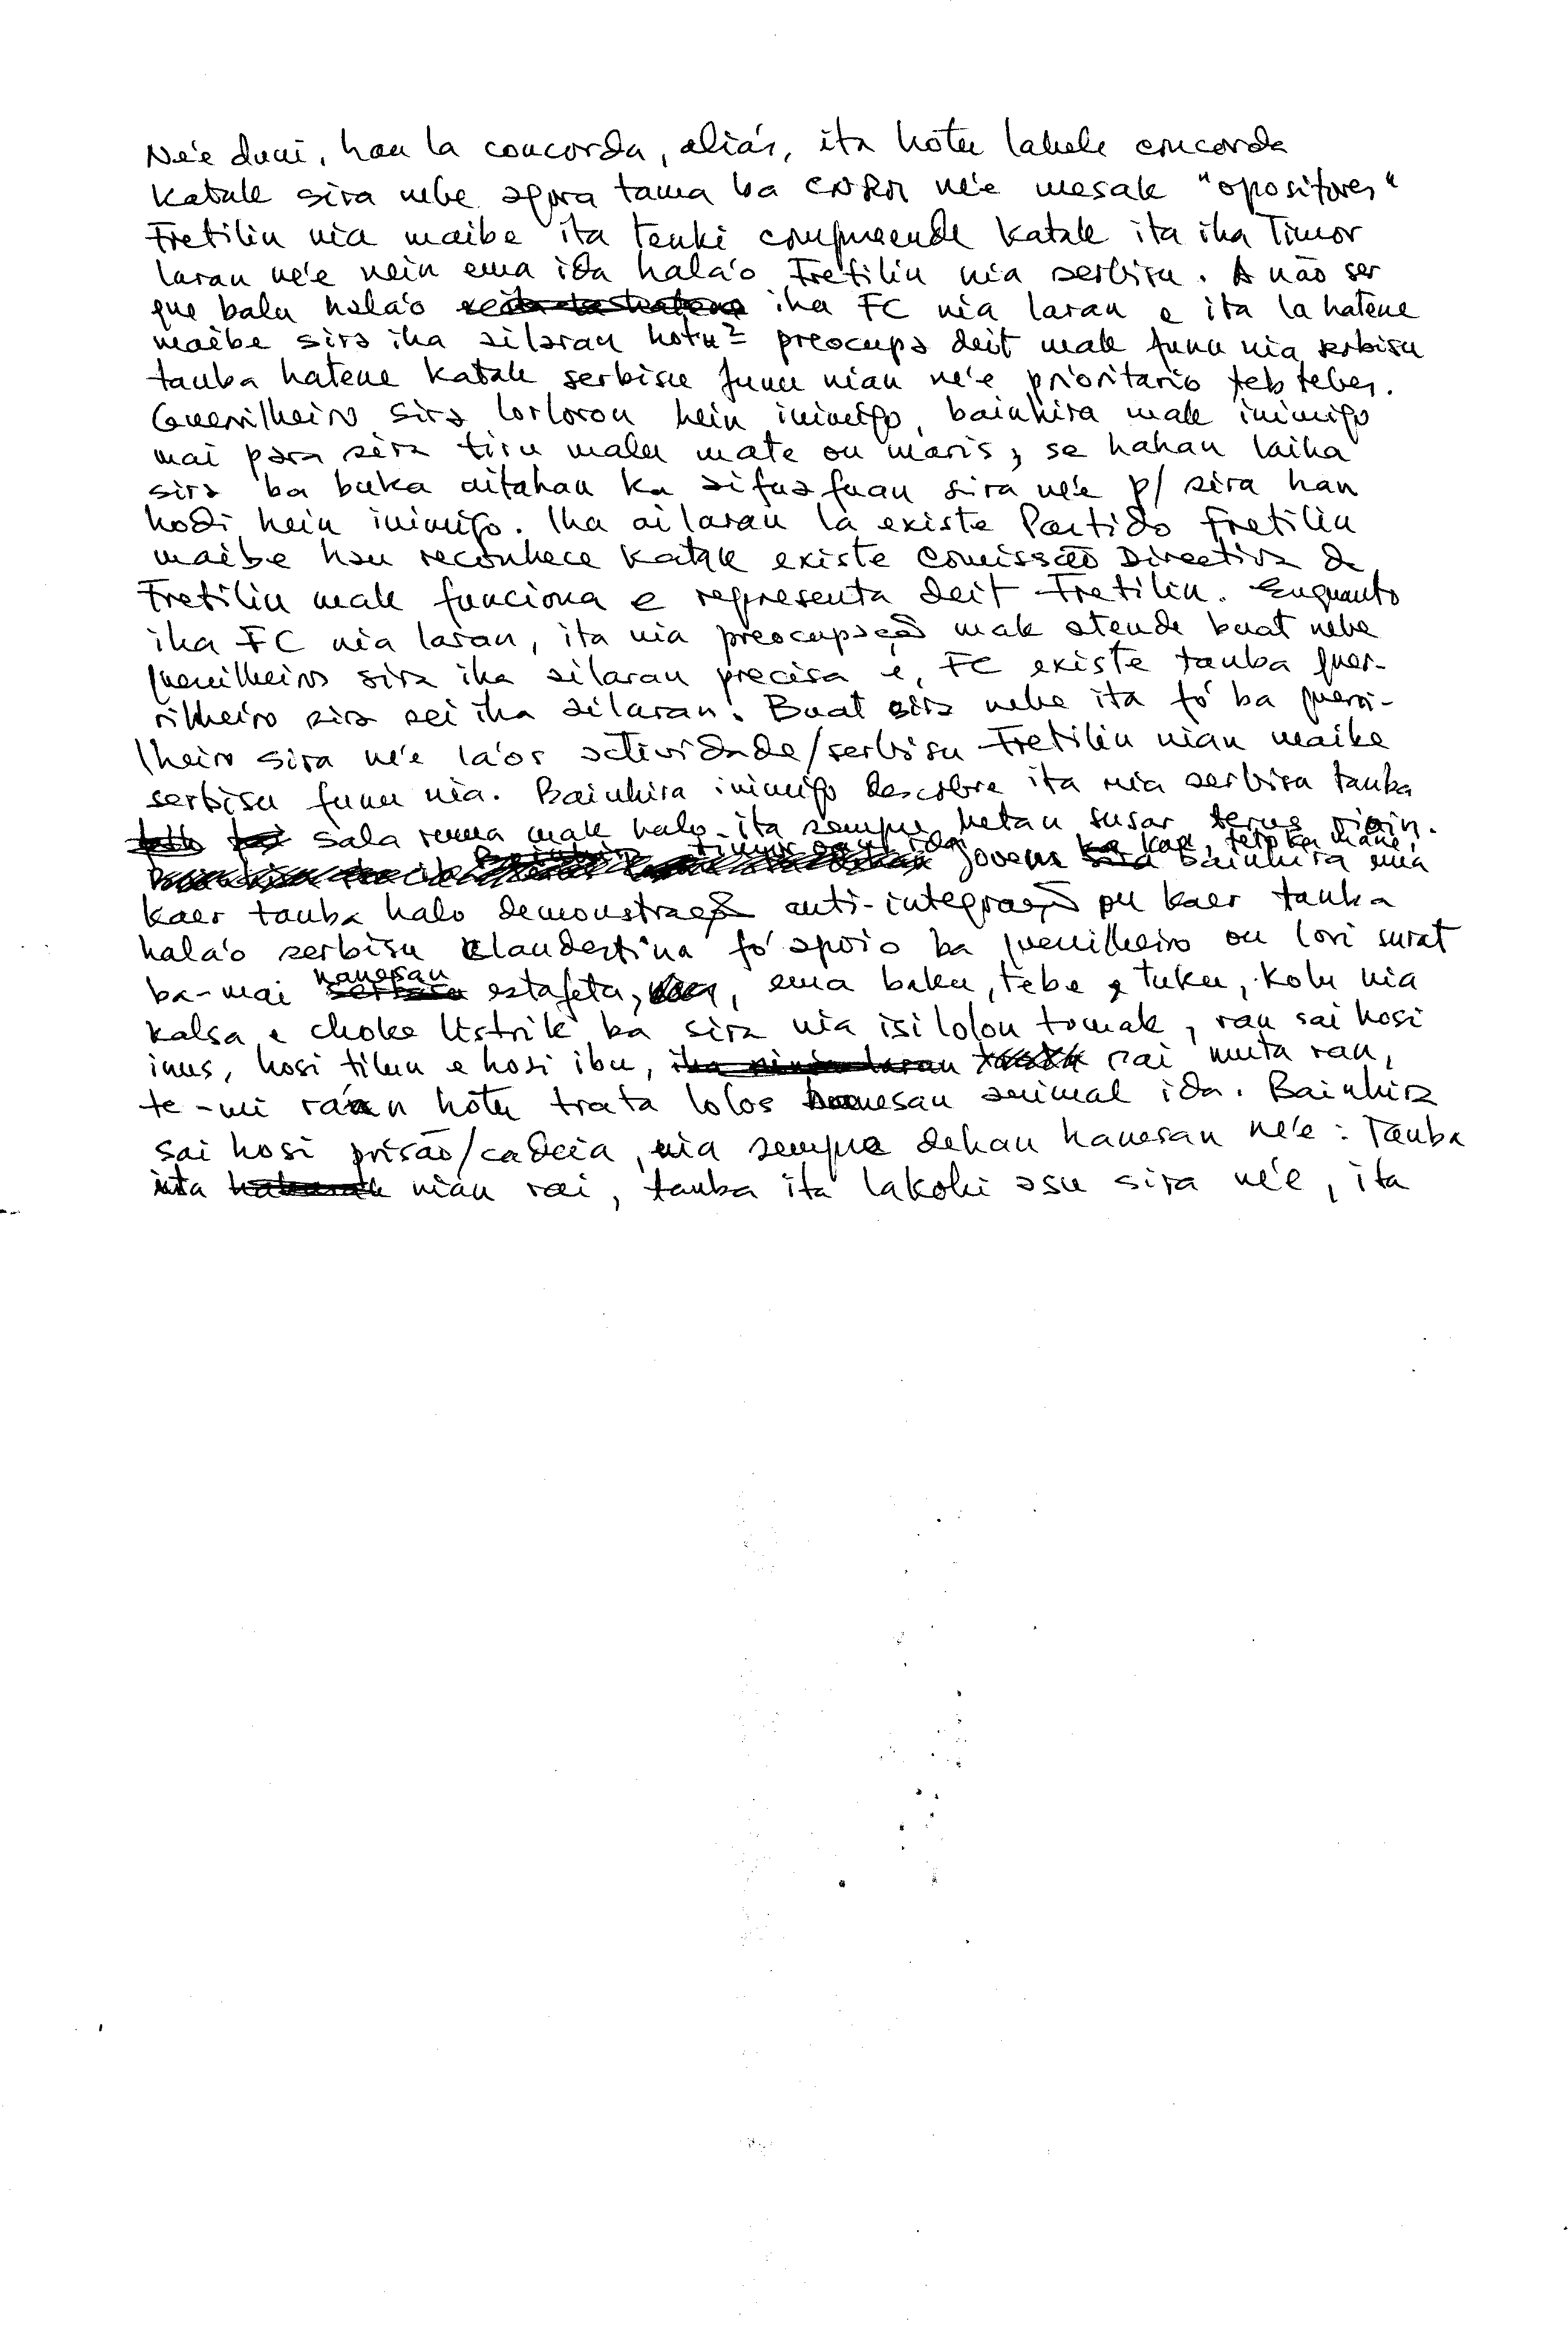 Ne'e duni, hau la concorda, aliás, ita hotu labele concorda
katak sira nebe agora tama ba CNRM ne'e mesak "opositores"
Fretilin nia maibe ita tenki compreende katak ita iha Timor
laran ne'e nein ema ida hala'o Fretilin nia serbisu. A não ser
que balu hala'o iha FC nia laran e ita la hatene
maibe sira iha ailaran hotu² preocupa deit mak funu nia serbisu
tanba hatene katak serbisu funu nian ne'e prioritario teb tebes.
Guerrilheiro sira lorloron hein inimigo, bainhira mak inimigo
mai para sira tiru malu mate ou moris, se hahan laiha
sira ba buka aitahan ka aifuafuan sira ne'e p/ sira han
hodi hein inimigo. Iha ailaran la existe Partido Fretilin
maibe hau reconhece katak existe Comissão Directiva da
Fretilin mak funciona e representa deit Fretilin. Enquanto
iha FC nia laran, ita nia preocupação mak atende buat nebe
guerrilheiros sira iha ailaran precisa e, FC existe tanba guer-
rilheiro sira sei iha ailaran. Buat sira nebe ita fó ba guerri-
lheiro sira ne'e la'os actividade/serbisu Fretilin nian maibe
serbisu funu nia. Bainhira inimigo descobre ita nia serbisu tanba
sala ruma mak halo ita sempre hetan susar terus
jovens feto ka mane, bainhira ema
kaer tanba halo demonstração anti-integração ou kaer tanba
hala'o serbisu clandestina fó apoio ba guerrilheiro ou lori surat
ba-mai hanesan estafeta, ema baku, tebe e tuku, kolu nia
kalsa e choke listrik ba sira nia isilolon tomak, ran sai hosi
inus, hosi tilun e hosi ibu, muta ran,
te-mi raan hotu trata lolos hanesan animal ida. Bainhira
sai hosi prisão/cadeia, nia sempre dehan hanesan ne'e: Tanba
ita nian rai, tanba ita lakohi asu sira ne'e, ita